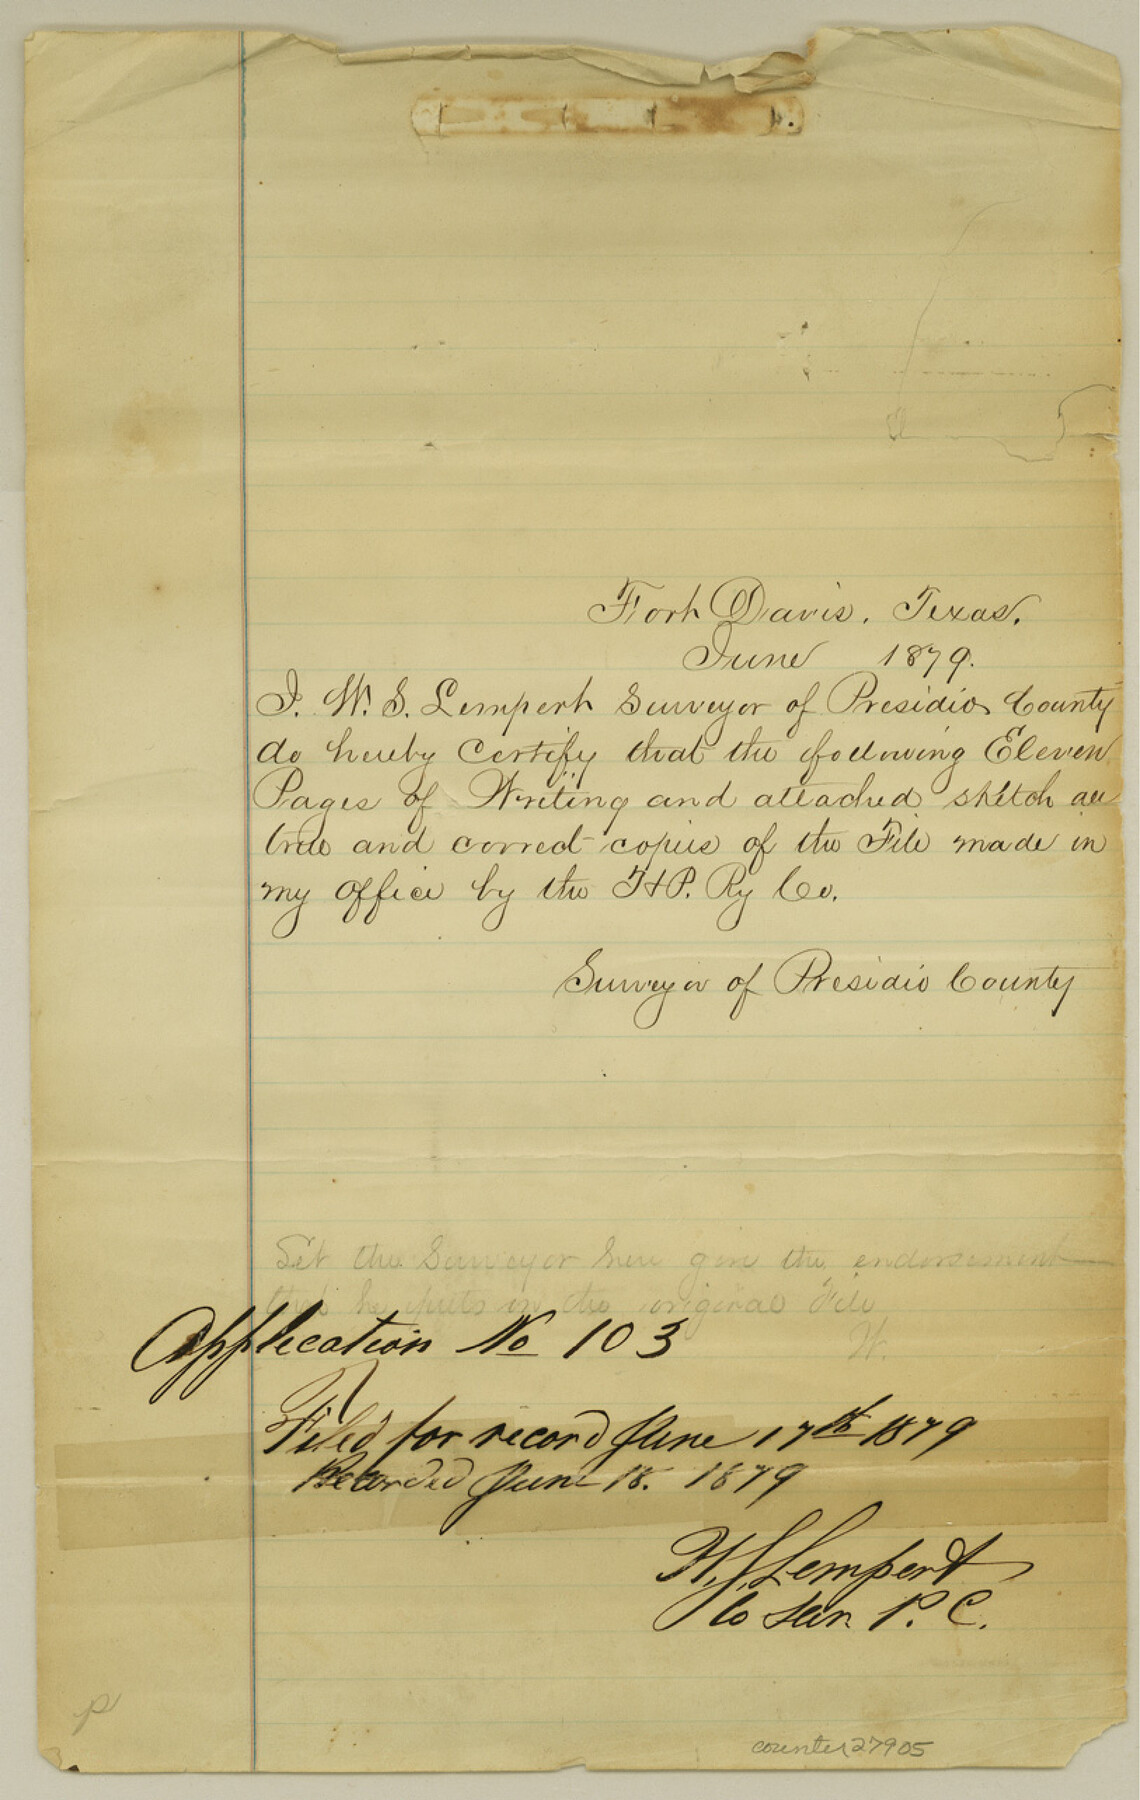 Fort Davis, Texas,
June 1879.
I. W. S. Lempert Surveyor of Presidio County
do hereby Certify that the following Eleven
Pages of Writing and attached sketch are
true and correct copies of the File made in
my office by the T&P. Ry Co.
Surveyor of Presidio County
Let the Surveyor here give the endorsement
that he puts on the original File
W.
Application No 103
Filed for record June 17th 1879
Recorded June 18. 1879
W. S. Lempert
Co Sur. P. C.
p
counter 27905